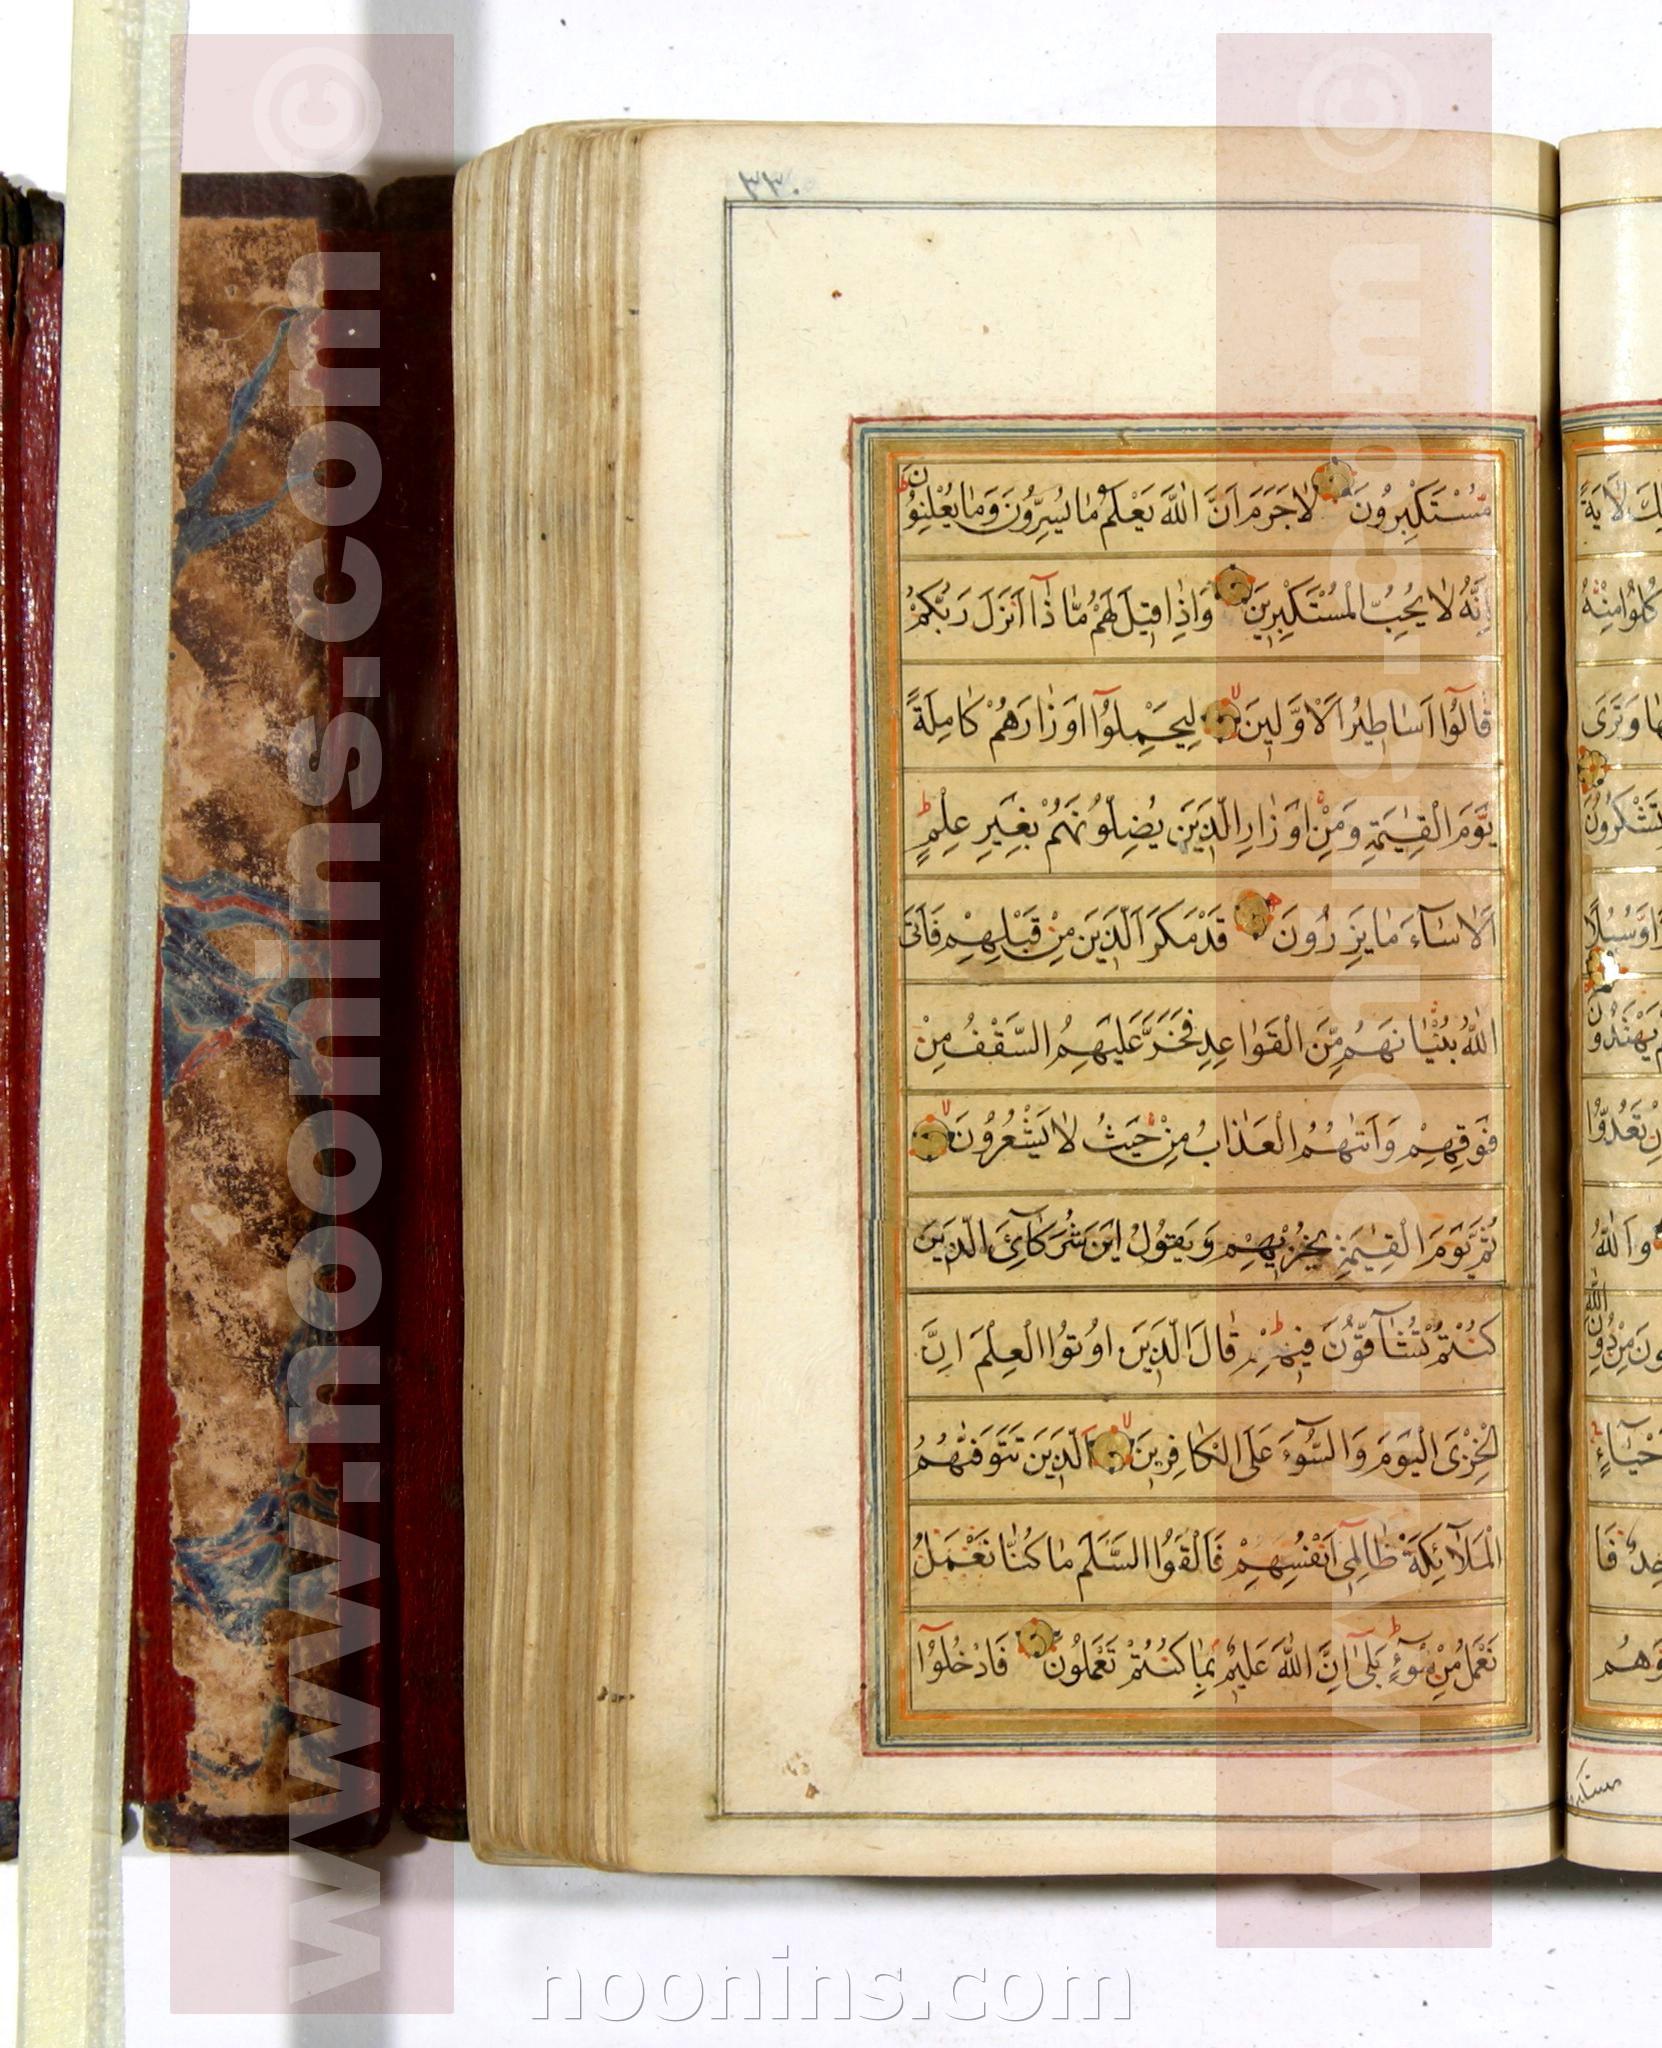 ٣٣٠
مُسْتَكْبِرُونَ لَا جَرَمَ اَنَّ اللّٰهَ يَعْلَمُ مَا يُسِرُّونَ وَمَا يُعْلِنُونَ ط
اِنَّهُ لَا يُحِبُّ الْمُسْتَكْبِرِينَ وَاِذَا قِيلَ لَهُمْ مَاذَآ اَنْزَلَ رَبُّكُمْ
قَالُوٓا اَسَاطِيرُ الْاَوَّلِينَ لا لِيَحْمِلُوٓا اَوْزَارَهُمْ كَامِلَةً
يَوْمَ الْقِيٰمَةِ وَمِنْ اَوْزَارِ الَّذِينَ يُضِلُّونَهُمْ بِغَيْرِ عِلْمٍ ط
اَلَا سَآءَ مَا يَزِرُونَ قَدْ مَكَرَ الَّذِينَ مِنْ قَبْلِهِمْ فَاَتَى
اللّٰهُ بُنْيَانَهُمْ مِنَ الْقَوَاعِدِ فَخَرَّ عَلَيْهِمُ السَّقْفُ مِنْ
فَوْقِهِمْ وَاَتٰىهُمُ الْعَذَابُ مِنْ حَيْثُ لَا يَشْعُرُونَ لا
ثُمَّ يَوْمَ الْقِيٰمَةِ يُخْزِيهِمْ وَيَقُولُ اَيْنَ شُرَكَآئِيَ الَّذِينَ
كُنْتُمْ تُشَآقُّونَ فِيهِمْ ط قَالَ الَّذِينَ اُوتُوا الْعِلْمَ اِنَّ
الْخِزْىَ الْيَوْمَ وَالسُّوٓءَ عَلَى الْكَافِرِينَ لا اَلَّذِينَ تَتَوَفّٰىهُمُ
الْمَلَآئِكَةُ ظَالِمِىٓ اَنْفُسِهِمْ فَاَلْقَوُا السَّلَمَ مَا كُنَّا نَعْمَلُ
نَعْمَلُ مِنْ سُوٓءٍ ط بَلٰىٓ اِنَّ اللّٰهَ عَلِيمٌ بِمَا كُنْتُمْ تَعْمَلُونَ فَادْخُلُوٓا
www.noonins.com ©
www.noonins.com ©
noonins.com